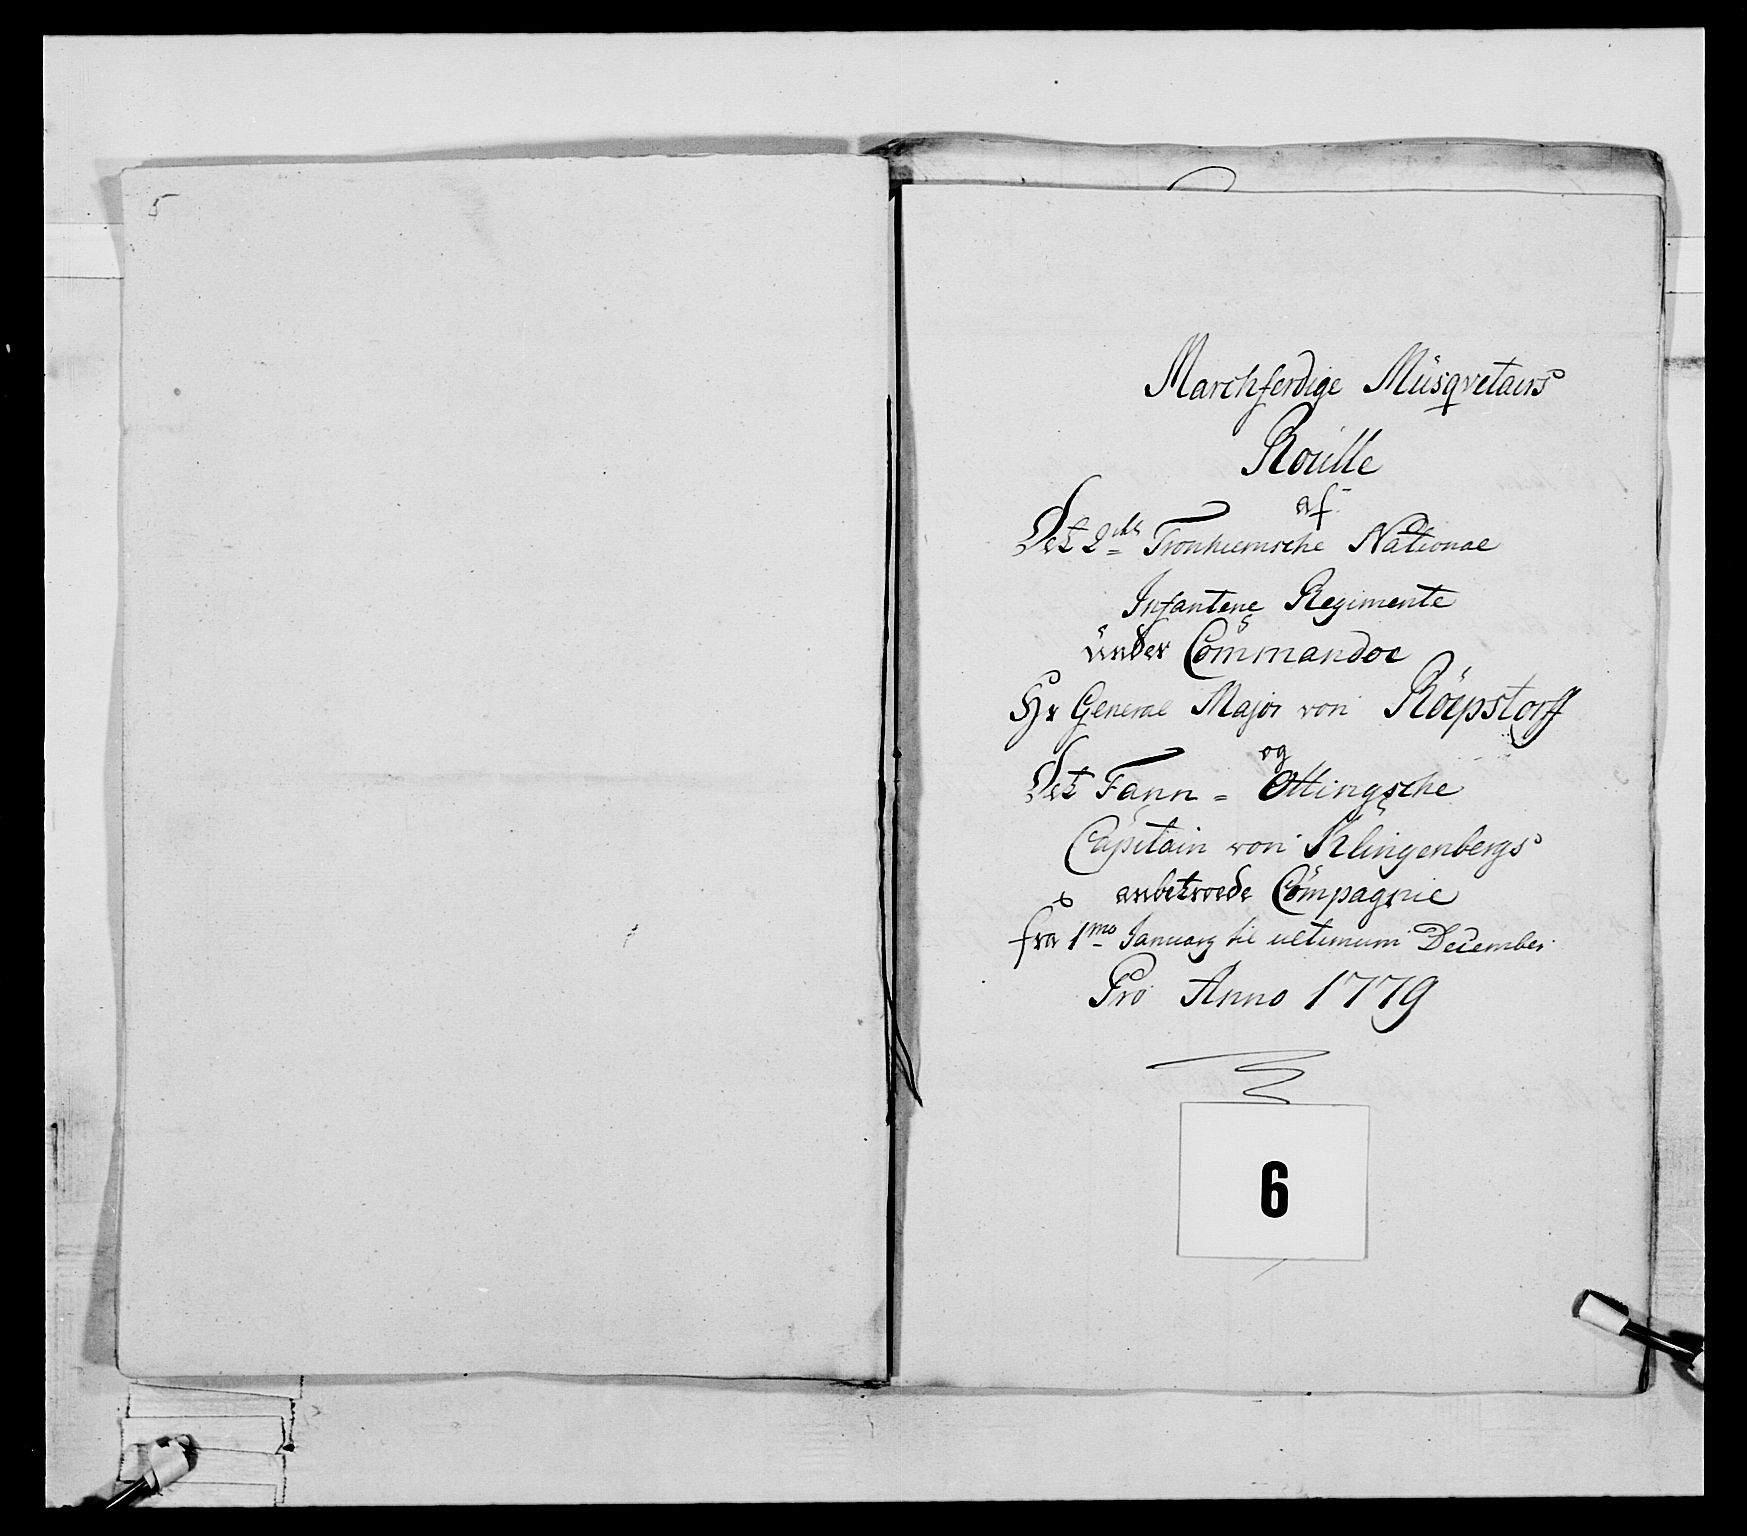 5
Marchferdige Müsqvetairs
Roülle
af
Det 2det Tronhiemsche National
Infanterie Regimente
ünder Commandoe
Hr General Major von Röepstorff
og
Det Fann = Ottingsche
Capitain von Klingenbergs
anbetroede Compagnie
fra 1mo January til ultimum December
Pro Anno 1779
6